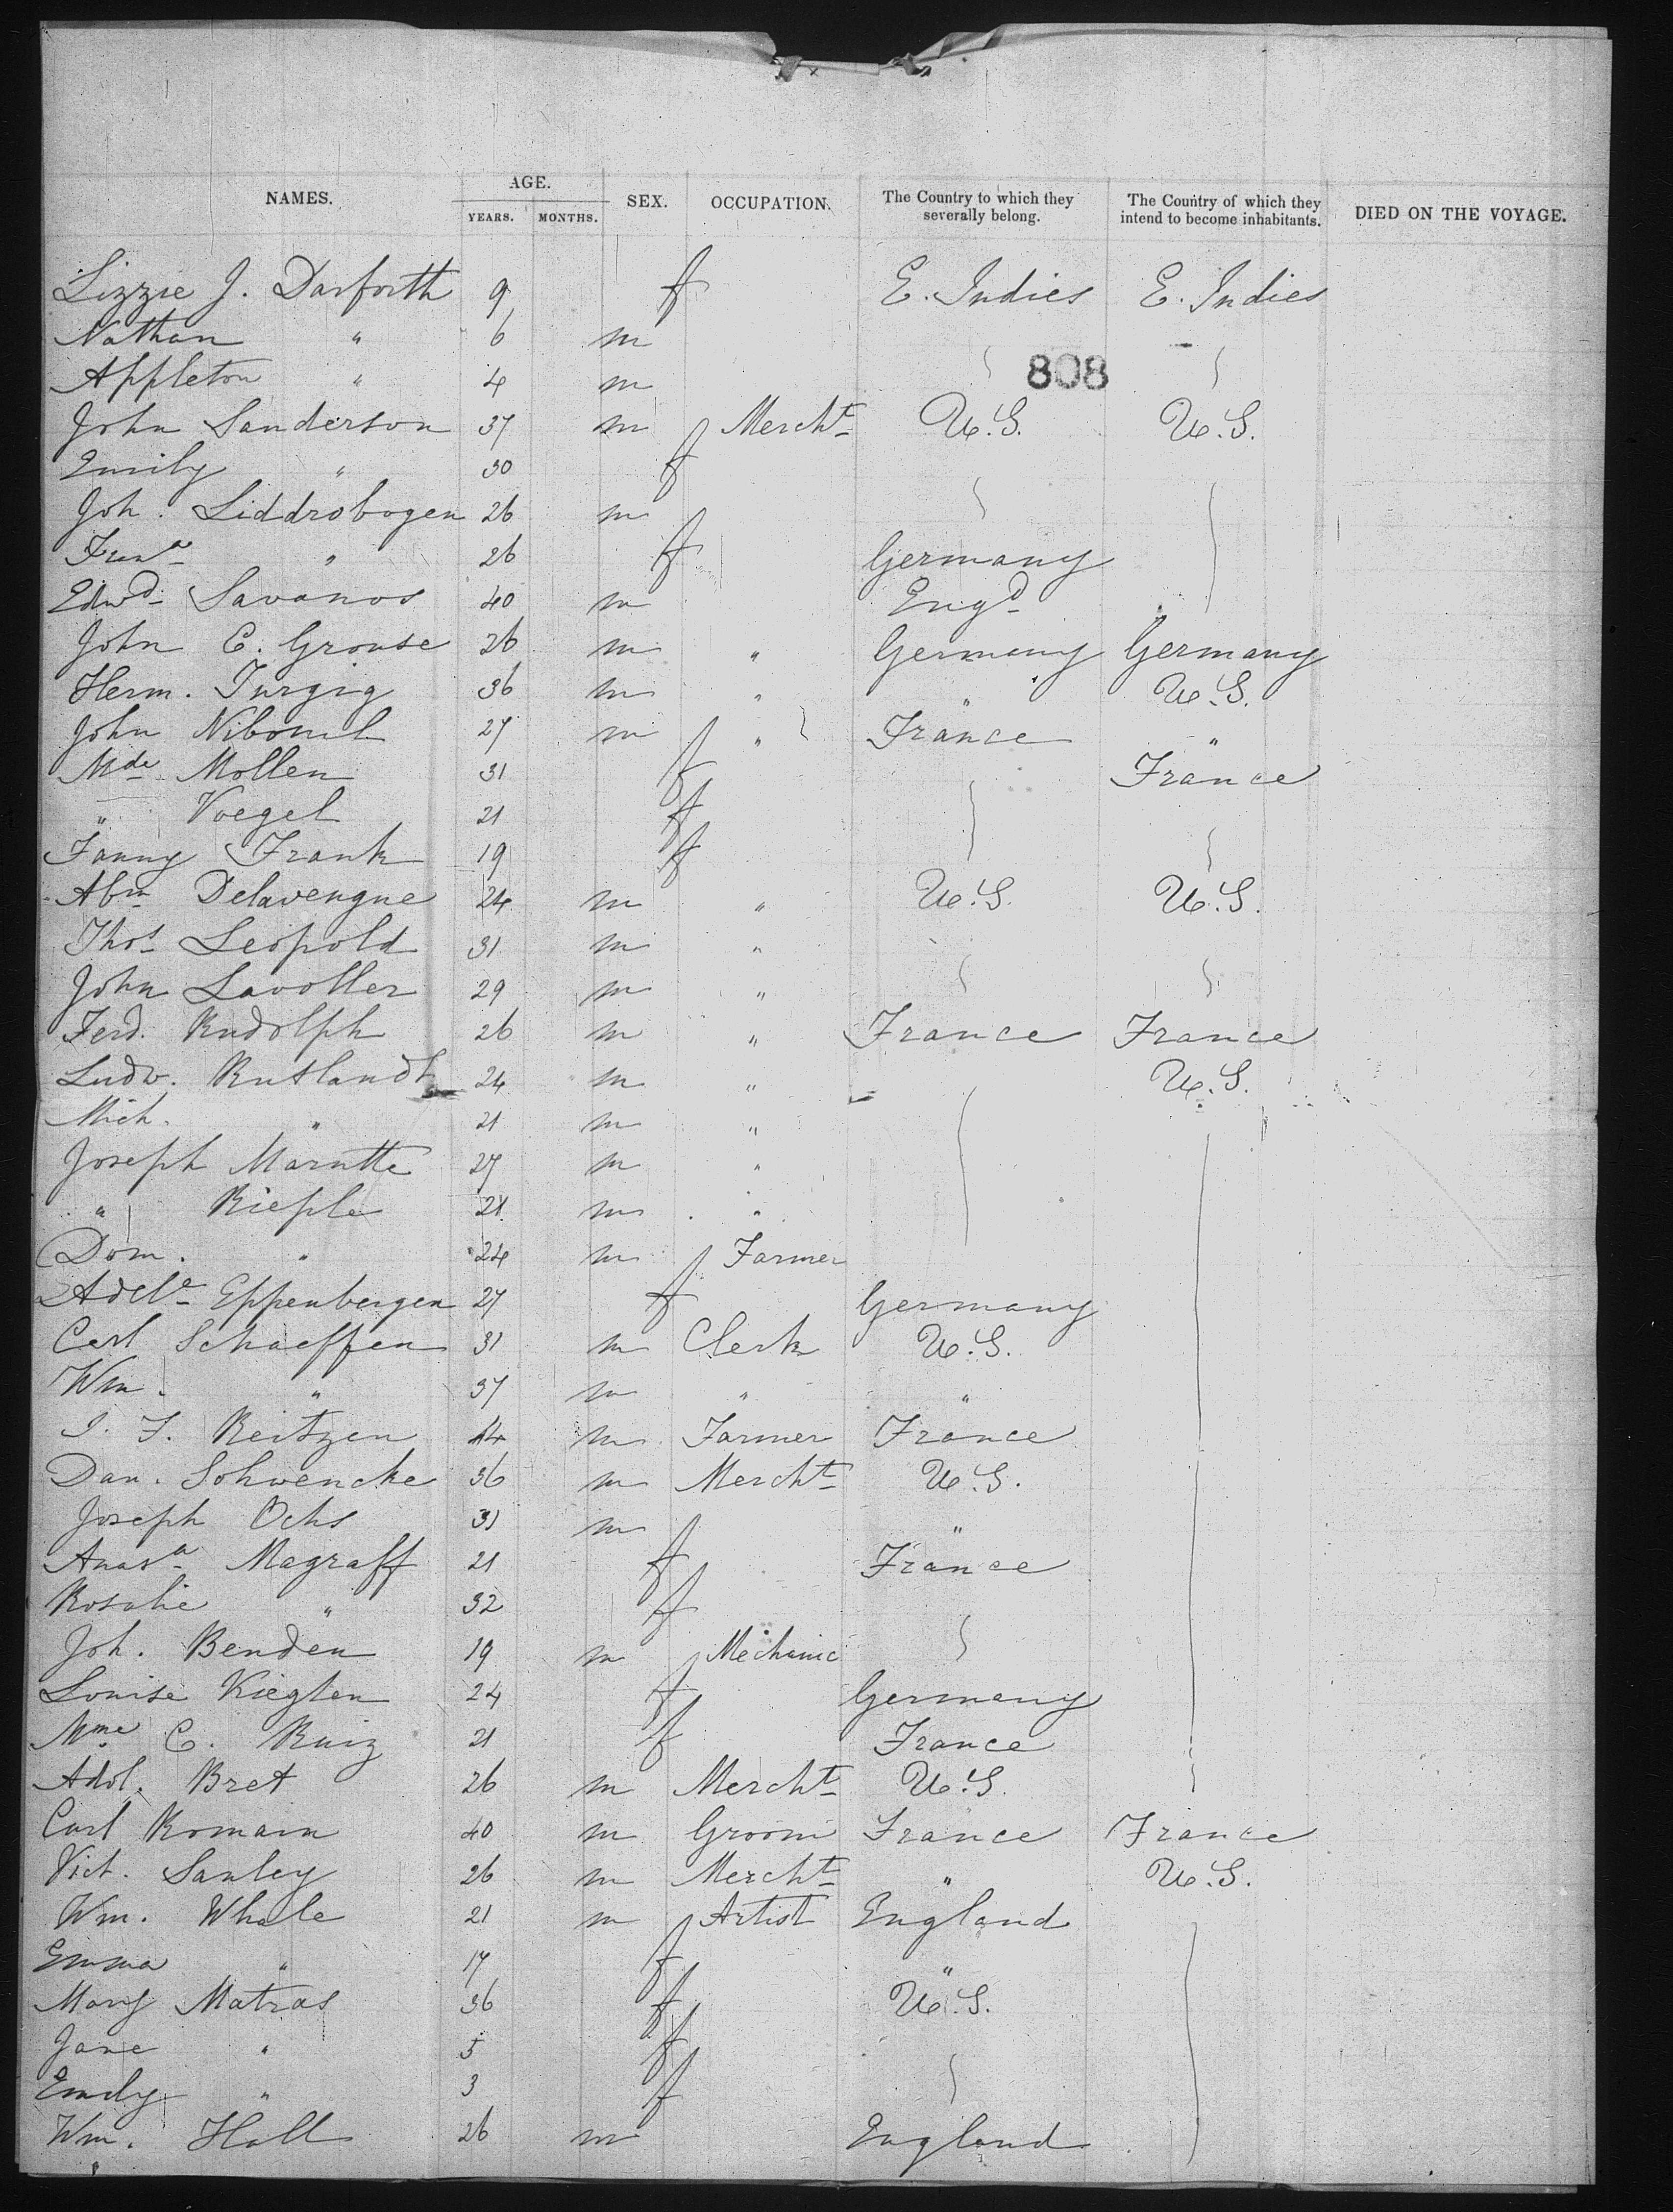 NAMES. AGE. SEX. OCCUPATION. The Country to which they severally belong. The Country of which they intend to become inhabitants. DIED ON THE VOYAGE.
YEARS. MONTHS.
Lizzie J. Danforth 9 f E. Indies E. Indies
Nathan " 6 m
Appleton " 4 m 808
John Sanderson 37 m Mercht U.S. U.S.
Emily " 30 f
Joh. Liddrobogen 26 m
" 26 f Germany
Edwd Savanos 40 m Engd
John C. Grouse 26 m " Germany Germany
Herm. 36 m " " U.S.
John Nibonil 27 m " France "
Mde Mollen 31 f France
" Voegel 21 f
Fanny Frank 19 f
Abm Delavengne 24 m " U.S. U.S.
Thos Leopold 31 m "
John Lavoller 29 m "
Ferd. Rudolph 26 m " France France
Ludv. Rutlandt 24 m " U.S.
Mich. " 21 m "
Joseph Marutte 27 m "
" Rieple 21 m "
Dom. " 24 m Farmer
Adele Eppenbergen 27 f Germany
Carl Schaeffen 31 m Clerk U.S.
Wm. " 37 m " "
J. F. Reitzen 44 m Farmer France
Dan. Sohwencke 36 m Mercht U.S.
Joseph Ochs 31 m "
Anasa Magraff 21 f France
Rosalie " 32 f
Joh. Benden 19 m Mechanic
Louise Kieglen 24 f Germany
Mme C. Ruiz 21 f France
Adol. Bret 26 m Mercht U.S.
Carl Romain 40 m Groom France France
Vict. Sanley 26 m Mercht " U.S.
Wm. Whale 21 m Artist England
Emma " 17 f "
Mary Matras 36 f U.S.
Jane " 5 f
Emily " 3 f
Wm. Hall 26 m England